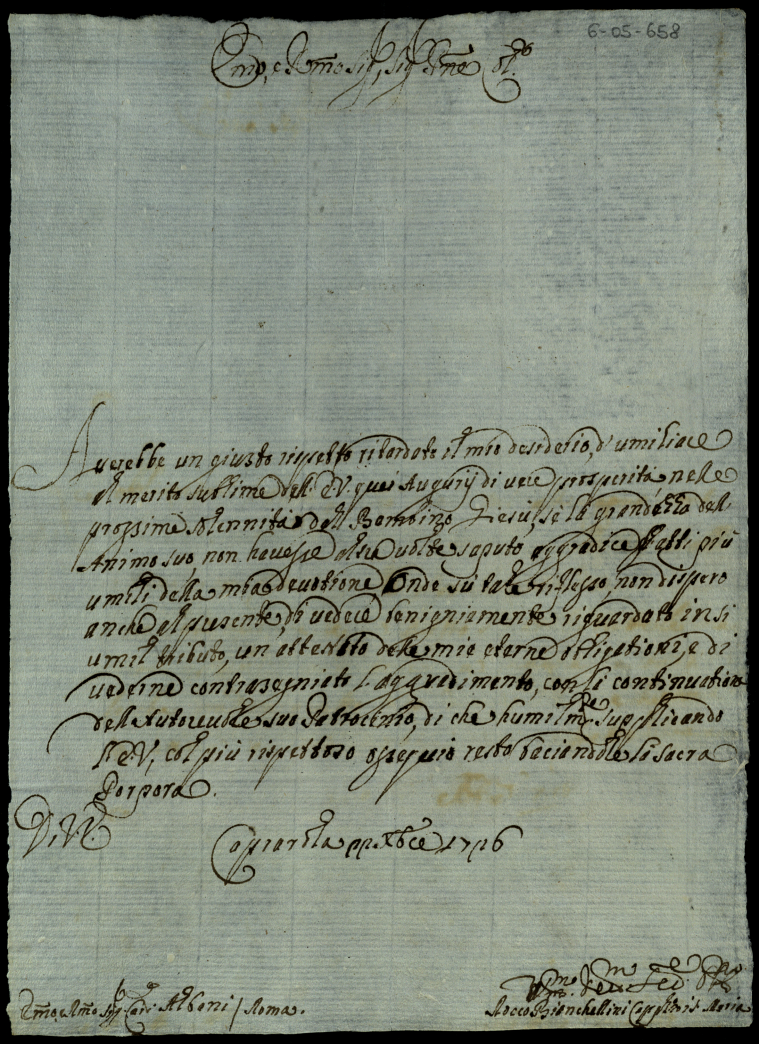 6-05-658
Emo, e Rmo Sig, Sig Pne Col.mo
Averebbe un giusto rispetto ritardato il mio desiderio, d'umiliare
al merito sublime dell' E.V. quei Augurij di vere prosperità nelle
prossime solennità del Bambino Giesù, se la grandezza dell'
Animo suo, non havesse altre volte saputo aggradire gl'atti più
umili della mia devotione. Onde sù tale riflesso, non dispero
anche al presente, di vedere benigniamente riguardato in si
umil tributo, un' attestato delle mie eterne obligationi, e di
vederne contrasegniato l'aggradimento, con la continuatione
dell'Autorevole suo Patrocinio, di che humilmte supplicando
l'E.V., col più rispettoso ossequio resto baciandole la sacra
Porpora.
D. V. E.
Caprarola pp. Xbre 1716
Emo, e Rmo Sig Card Albani / Roma.
Rocco Bianchellini